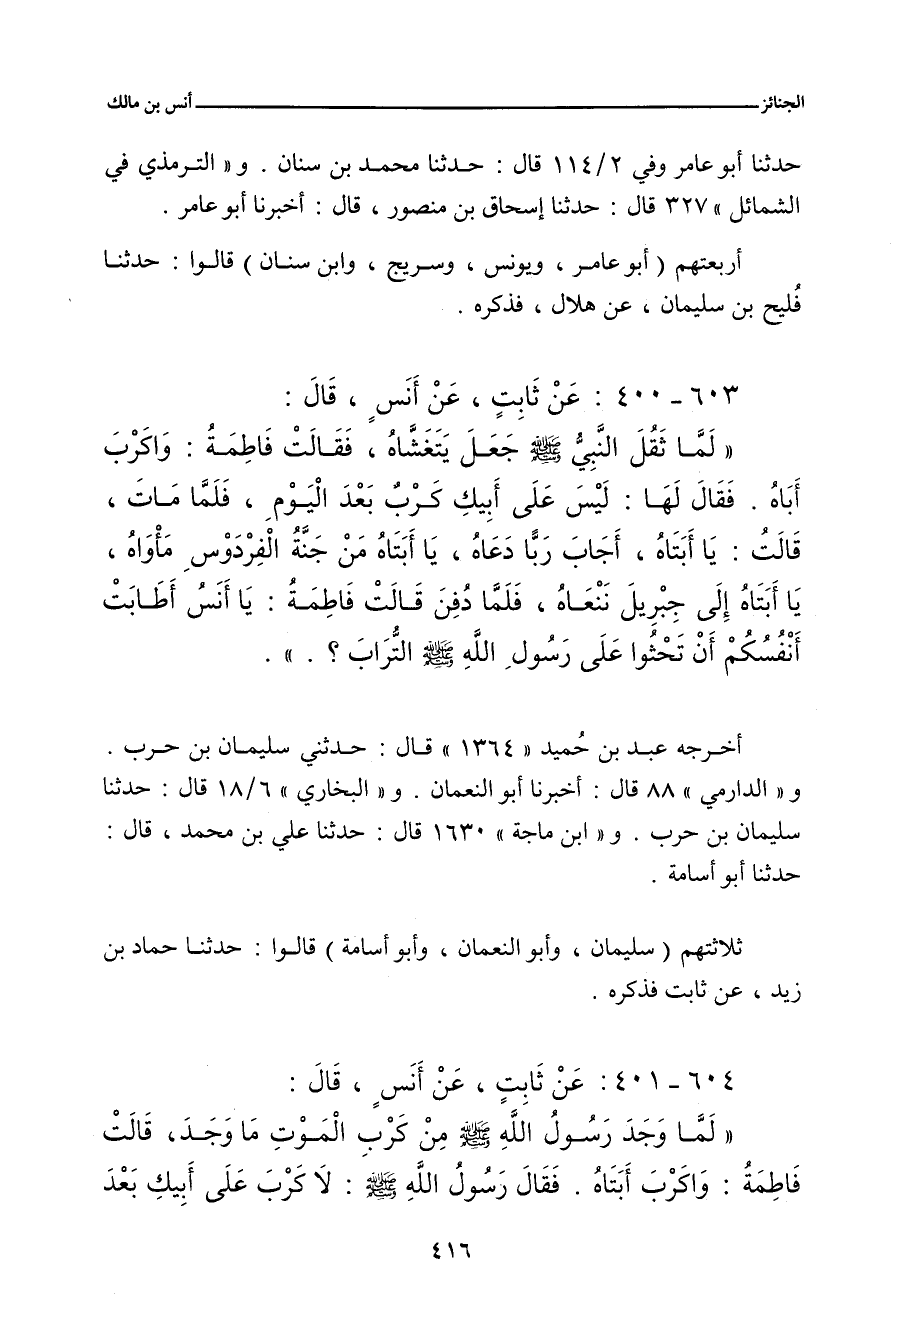 الجنائز ــــــــــــــــ أنس بن مالك
حدثنا أبو عامر وفي ٢/١١٤ قال : حدثنا محمد بن سنان . و« الترمذي في
الشمائل » ٣٢٧ قال : حدثنا إسحاق بن منصور ، قال : أخبرنا أبو عامر .
أربعتهم ( أبو عامر ، ويونس ، وسريج ، وابن سنان ) قالوا : حدثنا
فُليح بن سليمان ، عن هلال ، فذكره .
٦٠٣ - ٤٠٠ : عَنْ ثَابِتٍ ، عَنْ أَنَسٍ ، قَالَ :
« لَمَّا ثَقُلَ النَّبِيُّ ﷺ جَعَلَ يَتَغَشَّاهُ ، فَقَالَتْ فَاطِمَةُ : وَاكَرْبَ
أَبَاهُ . فَقَالَ لَهَا : لَيْسَ عَلَى أَبِيكِ كَرْبٌ بَعْدَ الْيَوْمِ ، فَلَمَّا مَاتَ ،
قَالَتُ : يَا أَبَتَاهُ ، أَجَابَ رَبًّا دَعَاهُ ، يَا أَبَتَاهُ مَنْ جَنَّةُ الْفِرْدَوْسِ مَأْوَاهُ ،
يَا أَبَتَاهُ إِلَى جِبْرِيلَ نَنْعَاهُ ، فَلَمَّا دُفِنَ قَالَتْ فَاطِمَةُ : يَا أَنَسُ أَطَابَتْ
أَنْفُسُكُمْ أَنْ تَحْثُوا عَلَى رَسُولِ اللَّهِ ﷺ التُّرَابَ ؟ . » .
أخرجه عبد بن حُميد « ١٣٦٤ » قال : حدثني سليمان بن حرب .
و« الدارمي » ٨٨ قال : أخبرنا أبو النعمان . و« البخاري » ٦/١٨ قال : حدثنا
سليمان بن حرب . و« ابن ماجة » ١٦٣٠ قال : حدثنا علي بن محمد ، قال :
حدثنا أبو أسامة .
ثلاثتهم ( سليمان ، وأبو النعمان ، وأبو أسامة ) قالوا : حدثنا حماد بن
زيد ، عن ثابت فذكره .
٦٠٤ - ٤٠١ : عَنْ ثَابِتٍ ، عَنْ أَنَسٍ ، قَالَ :
« لَمَّا وَجَدَ رَسُولُ اللَّهِ ﷺ مِنْ كَرْبِ الْمَوْتِ مَا وَجَدَ ، قَالَتْ
فَاطِمَةُ : وَاكَرْبَ أَبَتَاهُ . فَقَالَ رَسُولُ اللَّهِ ﷺ : لَا كَرْبَ عَلَى أَبِيكِ بَعْدَ
٤١٦